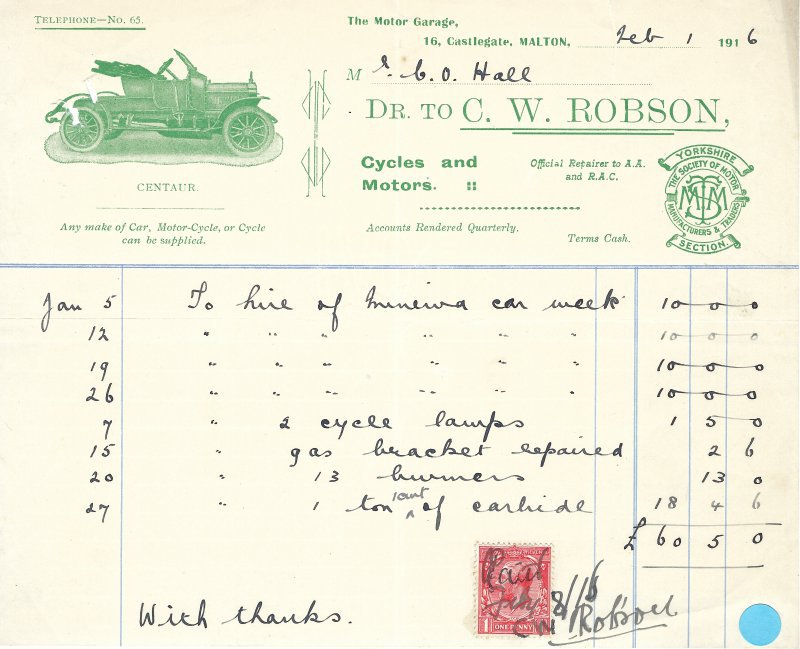 TELEPHONE—No. 65.
The Motor Garage,
16, Castlegate, MALTON, Feb 1 1916
Mr. C. O. Hall
DR. TO C. W. ROBSON,
Cycles and Motors. ::
Official Repairer to A.A. and R.A.C.
YORKSHIRE
THE SOCIETY OF MOTOR
MANUFACTURERS & TRADERS
SECTION.
CENTAUR.
Any make of Car, Motor-Cycle, or Cycle
can be supplied.
Accounts Rendered Quarterly.
Terms Cash.
Jan 5 To hire of Minerva car week 10 0 0
12 " " " " " " 10 0 0
19 " " " " " " 10 0 0
26 " " " " " " 10 0 0
7 " 2 cycle lamps 1 5 0
15 " gas bracket repaired 2 6
20 " 13 burners 13 0
27 " 1 ton 1 cwt of carbide 18 4 6
£ 60 5 0
8/16
C W Robson
1 ONE PENNY 1
With thanks.